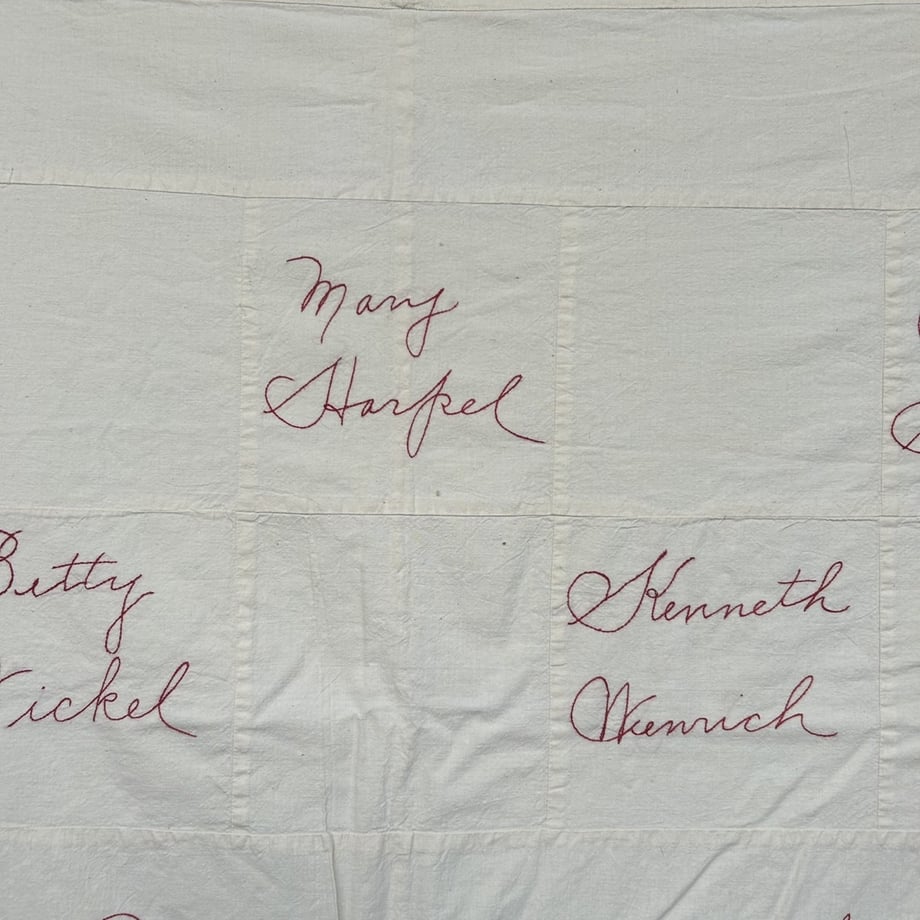 Mary
Harpel
Betty
Kenneth
Wenrich